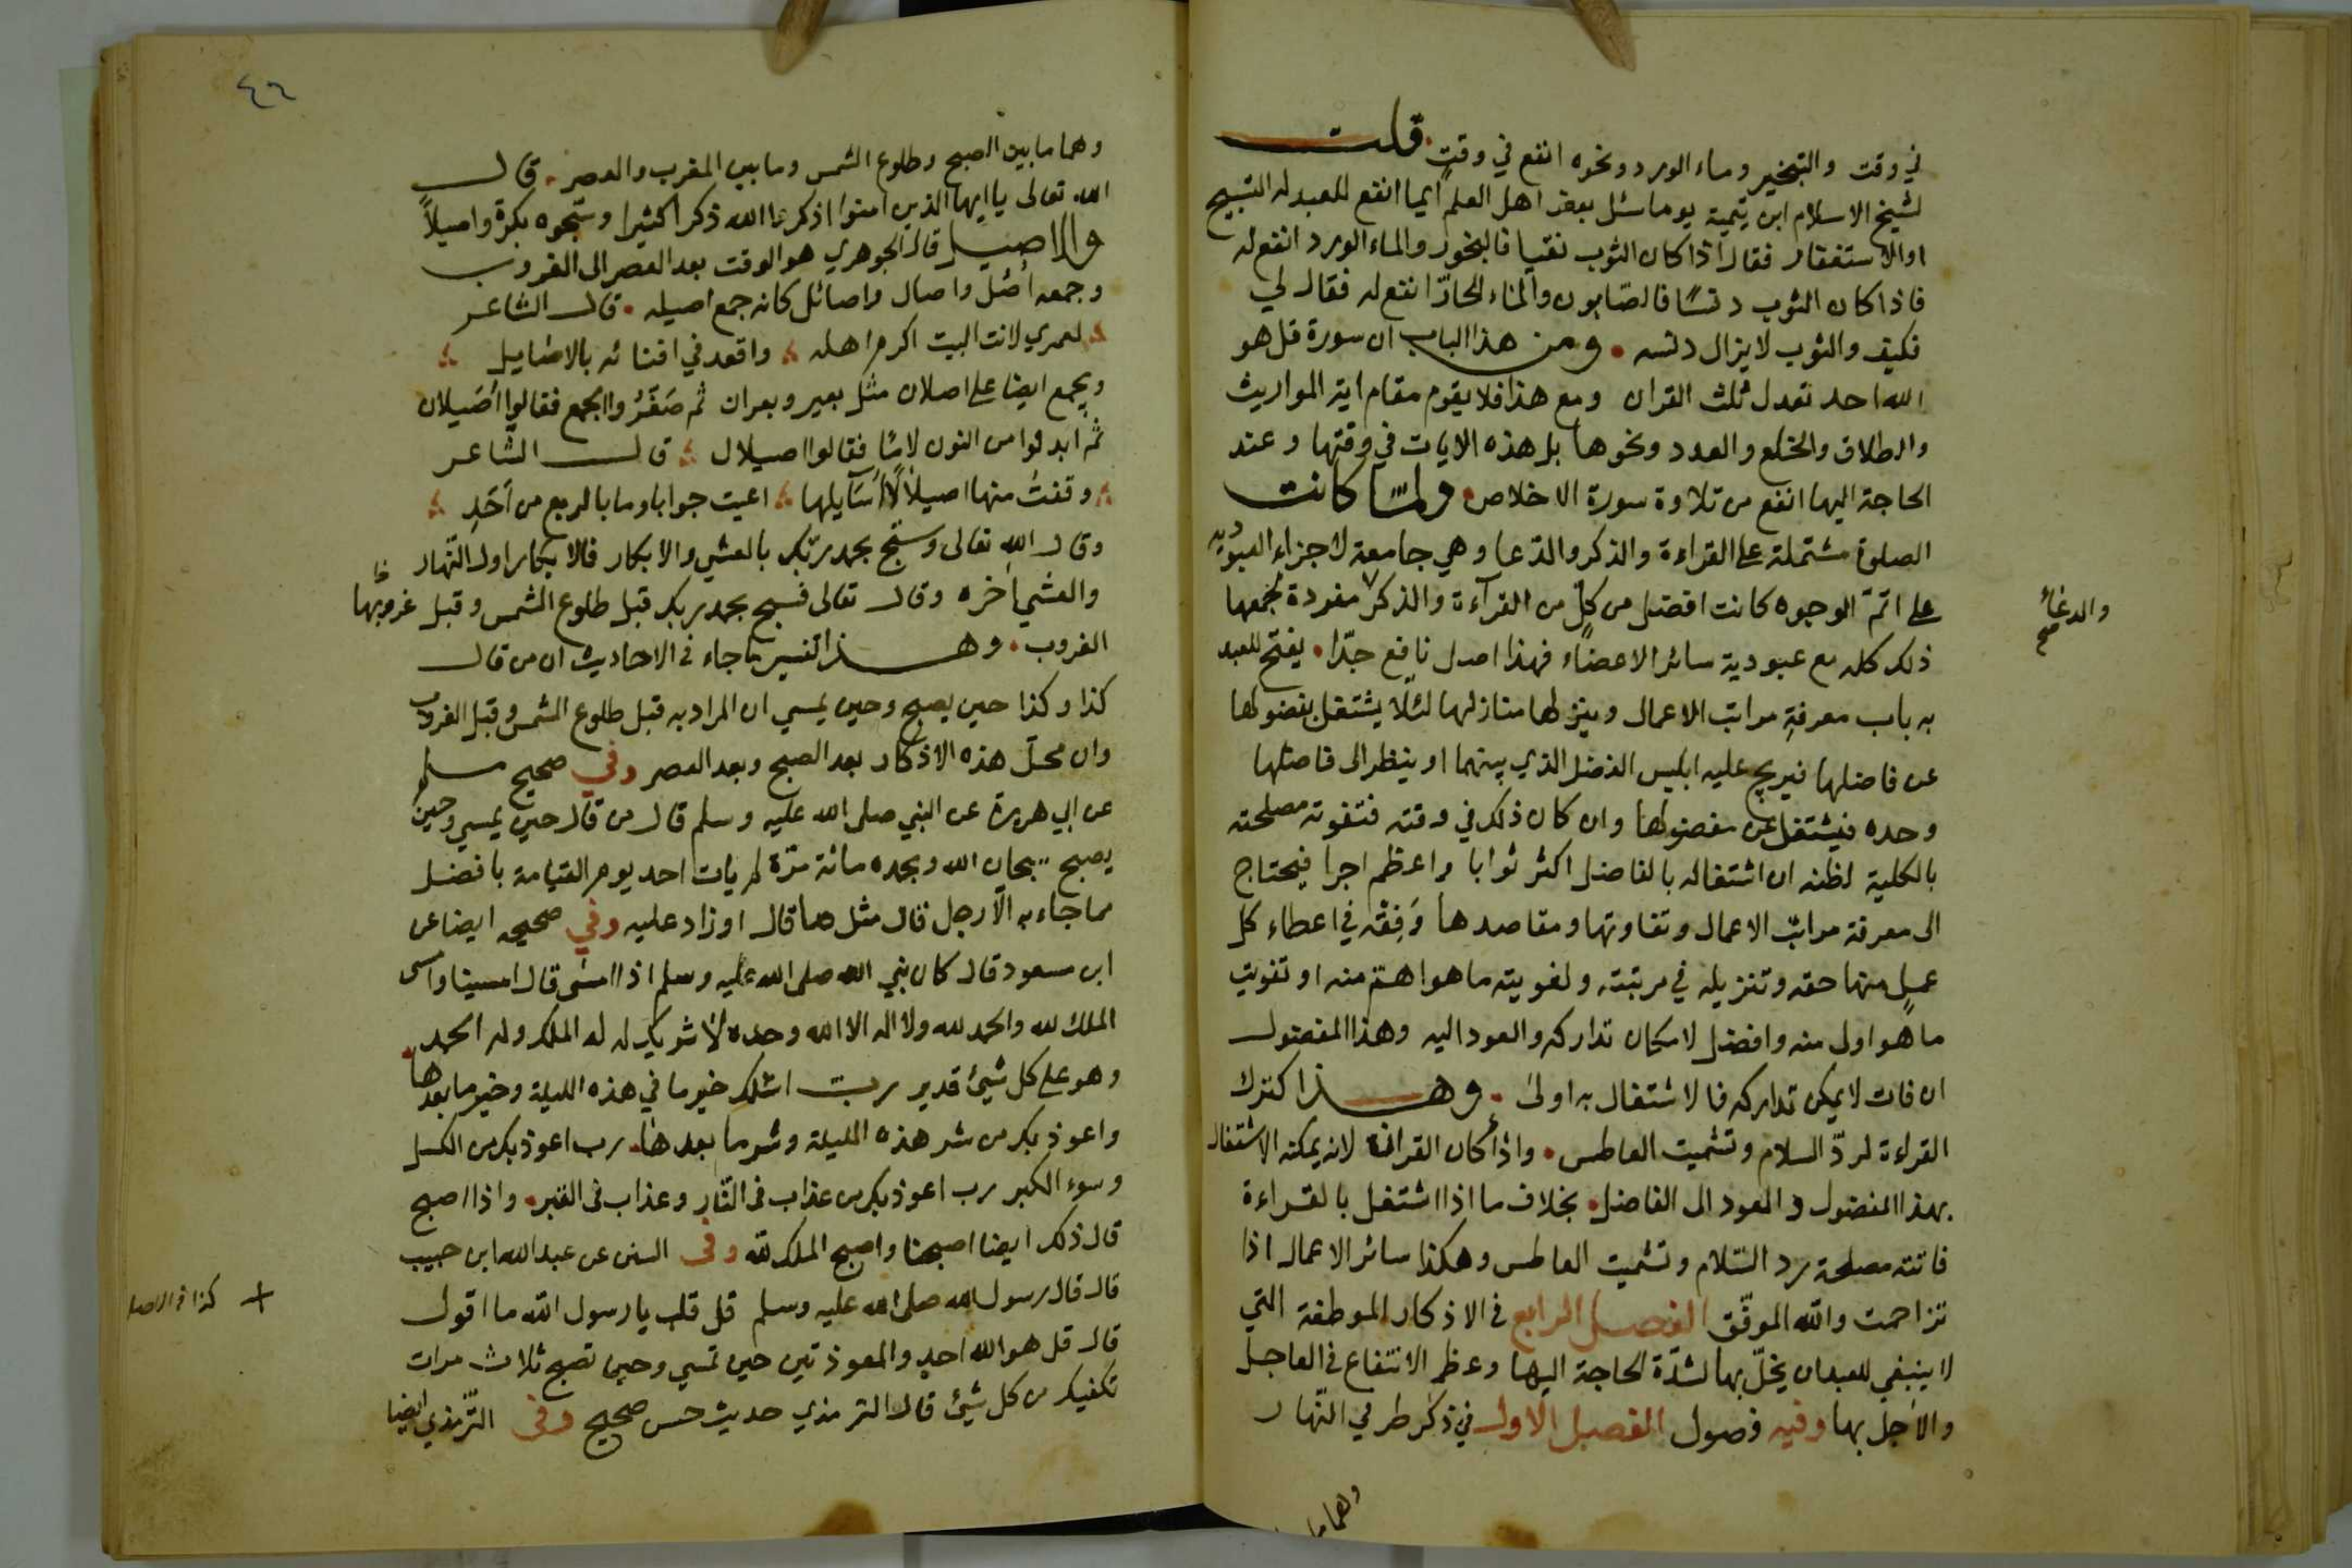 في وقت والتبخير وماء الورد ونحوه انفع في وقت . قلت
لشيخ الاسلام ابن تيمية يوما سئل بعض اهل العلم ايما انفع للعبد له التسبيح
او الاستغفار فقال اذا كان الثوب نقيا فالبخور والماء الورد انفع له
فاذا كان الثوب دنسًا فالصّابون والماء الحارّ انفع له فقال لي
فكيف والثوب لا يزال دنسه . ومن هذا الباب ان سورة قل هو
الله احد تعدل ثلث القران ومع هذا فلا يقوم مقام اية المواريث
والطلاق والخلع والعدد ونحوها بل هذه الايات في وقتها وعند
الحاجة اليها انفع من تلاوة سورة الاخلاص . ولمّا كانت
الصلوة مشتملة على القراءة والذكر والدّعا وهي جامعة لاجزاء العبودية
على اتمّ الوجوه كانت افضل من كلٍ من القرآءة والذكر مفردة لجمعها
والدعاء صح
ذلك كله مع عبودية سائر الاعضاء فهذا اصل نافع جدّا . يفتح للعبد
به باب معرفةِ مراتب الاعمال وينزلها منازلها لئلا يشتغل بفضولها
عن فاضلها فيربح عليه ابليس الفضل الذي بينهما او ينظر الى فاضلها
وحده فيشتغل عن مفضولها وان كان ذلك في وقته فتفوته مصلحته
بالكلية لظنه ان اشتغاله بالفاضل اكثر ثوابا واعظم اجرا فيحتاج
الى معرفة مراتب الاعمال وتفاوتها ومقاصدها وَفِقْه في اعطاء كل
عملٍ منها حقه وتنزيله في مرتبته ولفويته ما هو اهمّ منه او تفويت
ما هو اولى منه وافضل لامكان تداركه والعود اليه وهذا المفضول
ان فات لا يمكن تداركه فالاشتغال به اولى . وهذا كترك
القراءة لردّ السلام وتشميت العاطس . واذا كان القراءة لانه يمكنه الاشتغال
بهذا المفضول والعود الى الفاضل . بخلاف ما اذا اشتغل بالقراءة
فاتته مصلحة رد السّلام وتشميت العاطس وهكذا سائر الاعمال اذا
تزاحمت والله الموفّق الفصل الرابع في الاذكار الموظفة التي
لا ينبغي للعبد ان يخلّ بها لشدّة الحاجة اليها وعظم الانتفاع في العاجل
والاجل بها وفيه فصول الفصل الاول في ذكر طرفي النّهار
وهما ما
٤٦
وهما ما بين الصبح وطلوع الشمس وما بين المغرب والعصر . قال
الله تعالى يا ايها الذين امنوا اذكروا الله ذكرا كثيرا وسبحوه بكرة واصيلاً
والاصيل قال الجوهري هو الوقت بعد العصر الى الغروب
وجمعه أُصُل واصال واصائل كانه جمع اصيله . قال الشاعر
لعمري لانت البيت اكرم اهله واقعد في افنائه بالاصايل
ويجمع ايضا على اصلان مثل بعير وبعران ثم صَغّرُوا الجمع فقالوا أصَيلان
ثمّ ابدلوا من النون لامًا فقالوا اصيلال قال الشاعر
وقفتُ منها اصيلالًا أُسَايلها اعيت جوابا وما بالربع من أحَدِ
وقال الله تعالى وسبّح بحمد ربّك بالعشي والابكار فالابكار اول النّهار
والعشي اٰخره وقال تعالى فسبح بحمد ربك قبل طلوع الشمس وقبل غروبها
الغروب . وهذا تفسير ما جاء في الاحاديث ان من قال
كذا وكذا حين يصبح وحين يمسي ان المراد به قبل طلوع الشمس وقبل الغروب
وان محلّ هذه الاذكار بعد الصبح وبعد العصر وفي صحيح مسلم
عن ابي هريرة عن النبي صلى الله عليه وسلم قال من قال حين يمسي وحين
يصبح سبحان الله وبحمده مائة مرّة لم يات احد يوم القيامة بافضل
مما جاء به الّا رجل قال مثل ما قال او زاد عليه وفي صحيحه ايضا عن
ابن مسعود قال كان نبي الله صلى الله عليه وسلم اذا امسٰى قال امسينا وامسى
الملك لله والحمد لله ولا اله الا الله وحده لا شريك له له الملك وله الحمد
وهو على كل شيئ قدير رب اسئلك خير ما في هذه الليلة وخير ما بعدها
واعوذ بك من شر هذه الليلة وشر ما بعدها . رب اعوذ بك من الكسل
وسوء الكبر رب اعوذ بك من عذاب في النّار وعذاب في القبر . واذا اصبح
قال ذلك ايضا اصبحنا واصبح الملك لله وفي السنن عن عبد الله ابن حبيب
قال قال رسول الله صلى الله عليه وسلم قل قلت يا رسول الله ما اقول
+ كذا في الاصل
قال قل هو الله احد والمعوذتين حين تمسي وحين تصبح ثلاث مرات
تكفيك من كل شيئ قال الترمذي حديث حسن صحيح وفي التّرمذي ايضا